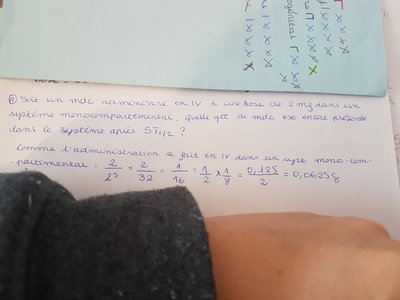 Soit un mdc administré en IV à une dose de 2 mg dans un
système monocompartimental, quelle qt de mdc est encore présente
dans le système après 5T1/2 ?
Comme l'administration se fait en IV dans un syst mono-com-
partimental : 2/2^5 = 2/32 = 1/16 = 1/2 x 1/8 = 0,125/2 = 0,0625g